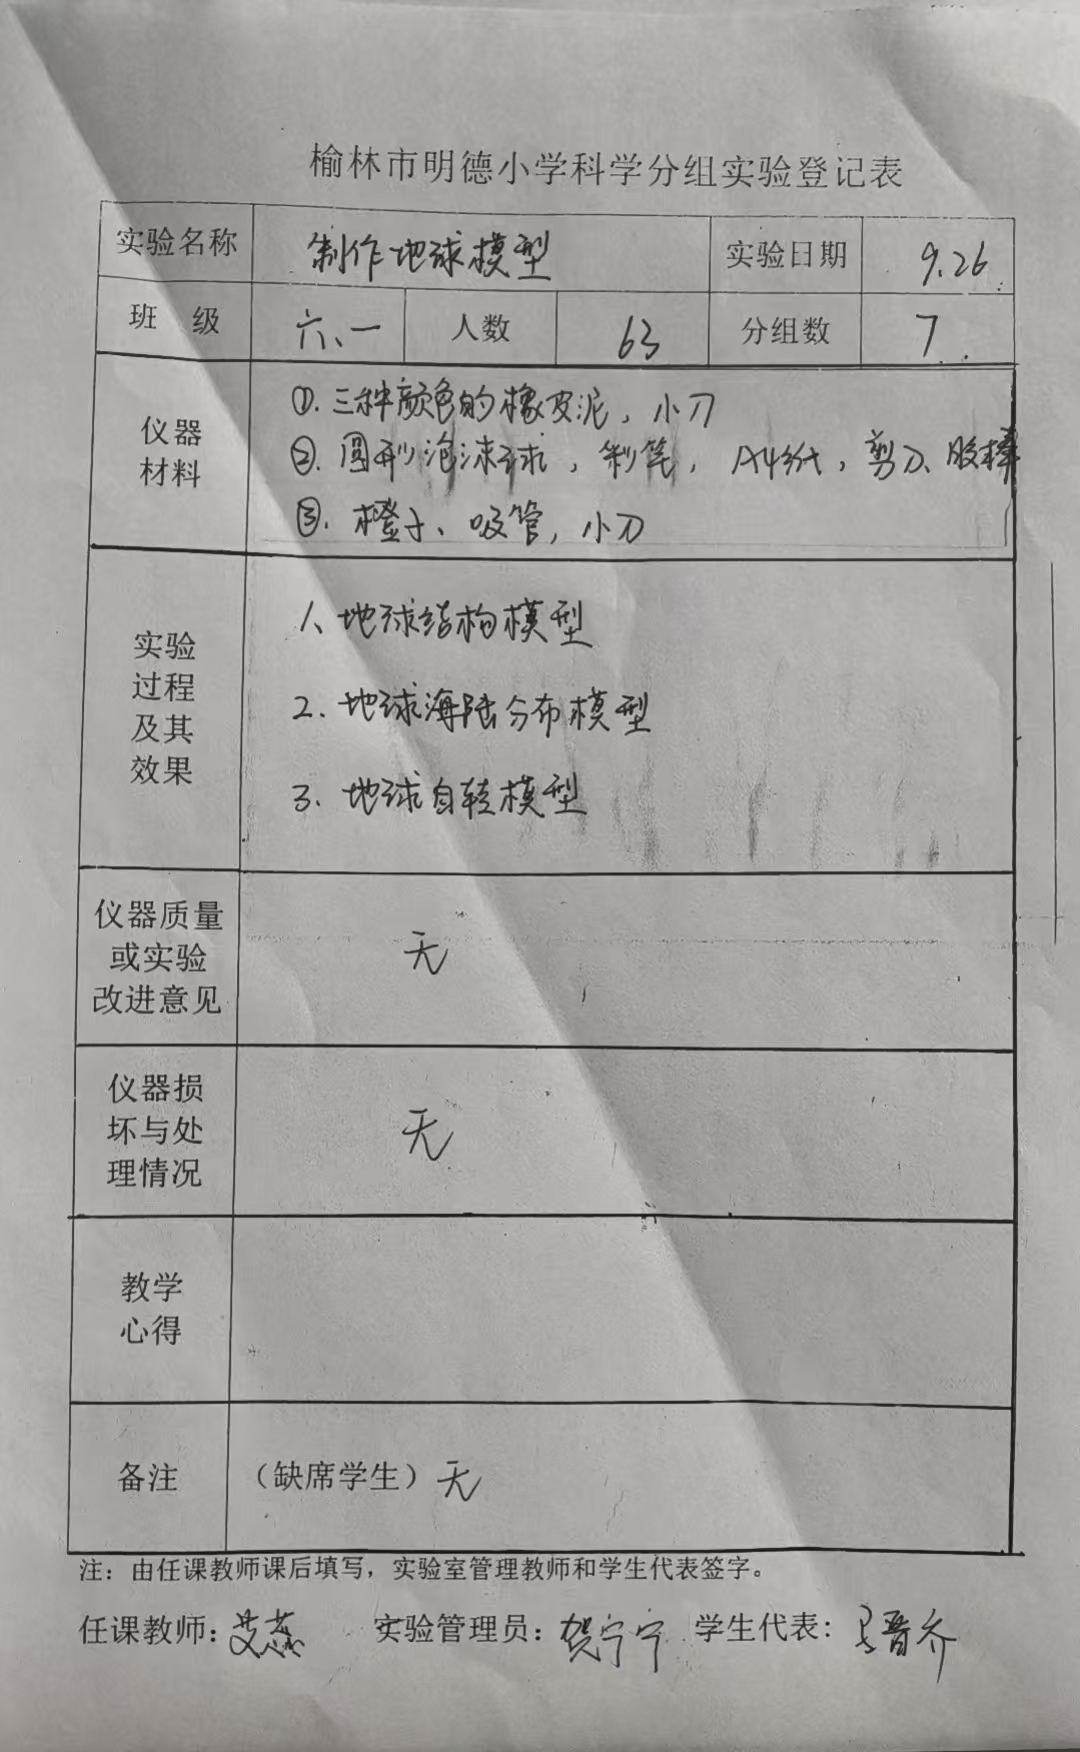 榆林市明德小学科学分组实验登记表
实验名称 制作地球模型 实验日期 9.26
班 级 六、一 人数 63 分组数 7
仪器
材料
①. 三种颜色的橡皮泥, 小刀
②. 圆形泡沫球, 彩笔, A4纸, 剪刀、胶棒
③. 橙子、吸管, 小刀
实验
过程
及其
效果
1、地球结构模型
2. 地球海陆分布模型
3. 地球自转模型
仪器质量
或实验
改进意见
无
仪器损
坏与处
理情况
无
教学
心得
备注 (缺席学生) 无
注：由任课教师课后填写，实验室管理教师和学生代表签字。
任课教师: 艾蕊 实验管理员: 贺宁宁 学生代表: